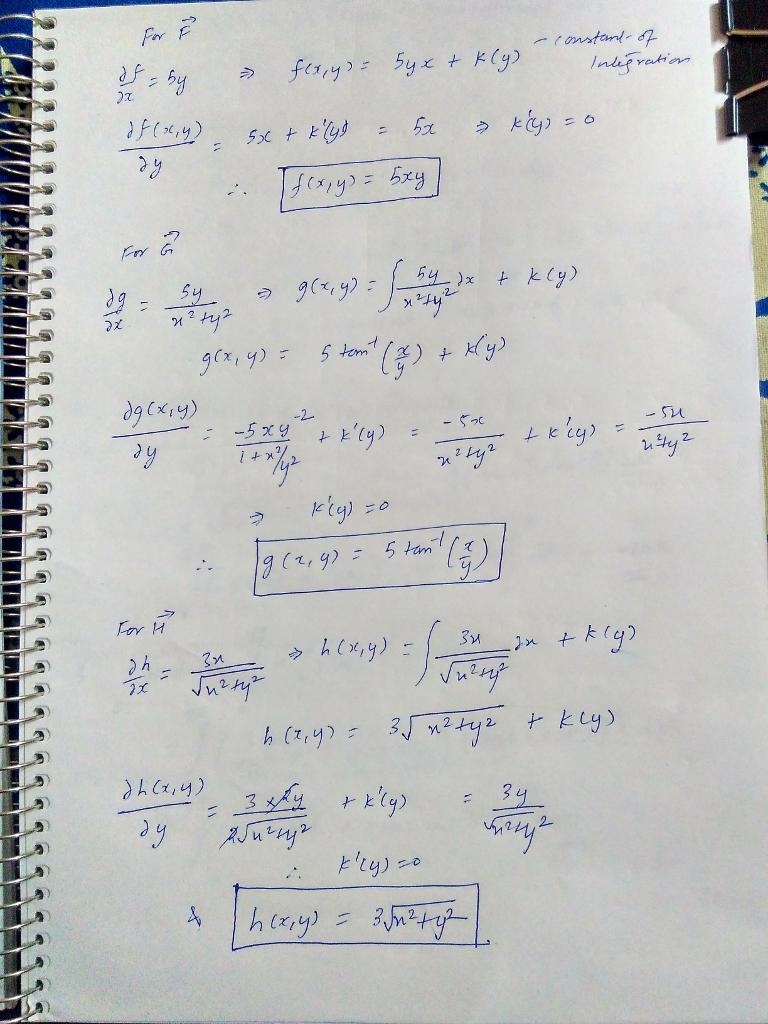 For F⃗
∂f/∂x = 5y ⇒ f(x,y) = 5yx + k(y) - constant of Integration
∂f(x,y)/∂y = 5x + k'(y) = 5x ⇒ k'(y) = 0
∴ f(x,y) = 5xy
For G⃗
∂g/∂x = 5y/(x²+y²) ⇒ g(x,y) = ∫ 5y/(x²+y²) ∂x + k(y)
g(x,y) = 5 tan⁻¹(x/y) + k(y)
∂g(x,y)/∂y = -5xy⁻²/(1+x²/y²) + k'(y) = -5x/(x²+y²) + k'(y) = -5x/(x²+y²)
⇒ k'(y) = 0
∴ g(x,y) = 5 tan⁻¹(x/y)
For H⃗
∂h/∂x = 3x/√(x²+y²) ⇒ h(x,y) = ∫ 3x/√(x²+y²) ∂x + k(y)
h(x,y) = 3√(x²+y²) + k(y)
∂h(x,y)/∂y = 3×2y/2√(x²+y²) + k'(y) = 3y/√(x²+y²)
∴ k'(y) = 0
& h(x,y) = 3√(x²+y²).